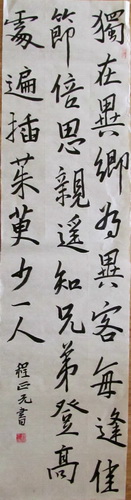 獨在異鄉為異客每逢佳
節倍思親遙知兄弟登高
處遍插茱萸少一人
程正元書